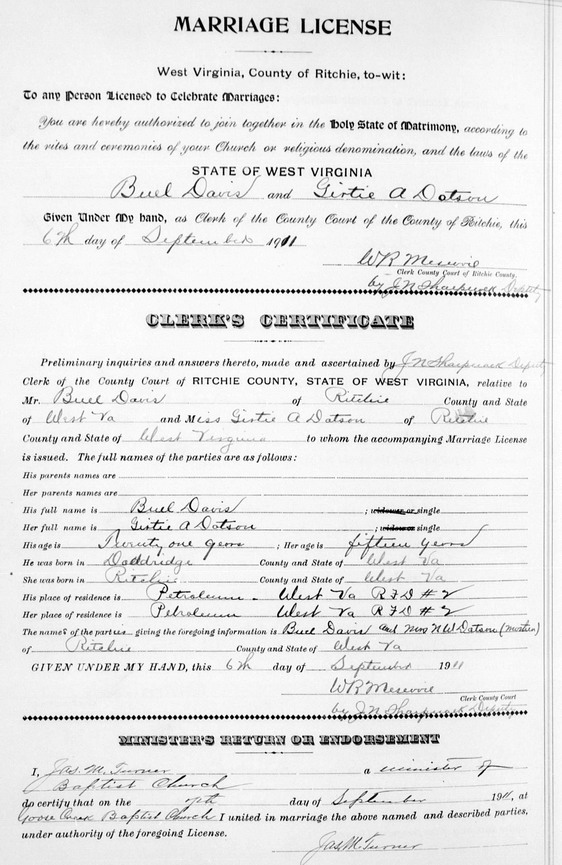 MARRIAGE LICENSE
West Virginia, County of Ritchie, to-wit:
To any Person Licensed to Celebrate Marriages:
You are hereby authorized to join together in the Holy State of Matrimony, according to
the rites and ceremonies of your Church or religious denomination, and the laws of the
STATE OF WEST VIRGINIA
Buel Davis and Girtie A Dotson
Given Under My hand, as Clerk of the County Court of the County of Ritchie, this
6th day of September 1911
W R Meservie
Clerk County Court of Ritchie County.
by J N Sharpneck Deputy
CLERK'S CERTIFICATE
Preliminary inquiries and answers thereto, made and ascertained by J N Sharpneck Deputy
Clerk of the County Court of RITCHIE COUNTY, STATE OF WEST VIRGINIA, relative to
Mr. Buel Davis of Ritchie County and State
of West Va and Miss Girtie A Dotson of Ritchie
County and State of West Virginia to whom the accompanying Marriage License
is issued. The full names of the parties are as follows:
His parents names are
Her parents names are
His full name is Buel Davis ; widower or single
Her full name is Girtie A Dotson ; widow or single
His age is Twenty one years ; Her age is fifteen years
He was born in Doddridge County and State of West Va
She was born in Ritchie County and State of West Va
His place of residence is Petroleum - West Va R F D # 2
Her place of residence is Petroleum West Va R F D # 2
The names of the parties giving the foregoing information is Buel Davis and Mrs N W Dotson (mother)
of Ritchie County and State of West Va
GIVEN UNDER MY HAND, this 6th day of September 1911
W R Meservie
Clerk County Court
by J N Sharpneck Deputy
MINISTER'S RETURN OR ENDORSEMENT
I, Jas. M. Turner a minister of
Baptist Church
do certify that on the 7th day of September 1911, at
Goose Creek Baptist Church I united in marriage the above named and described parties,
under authority of the foregoing License.
Jas M. Turner